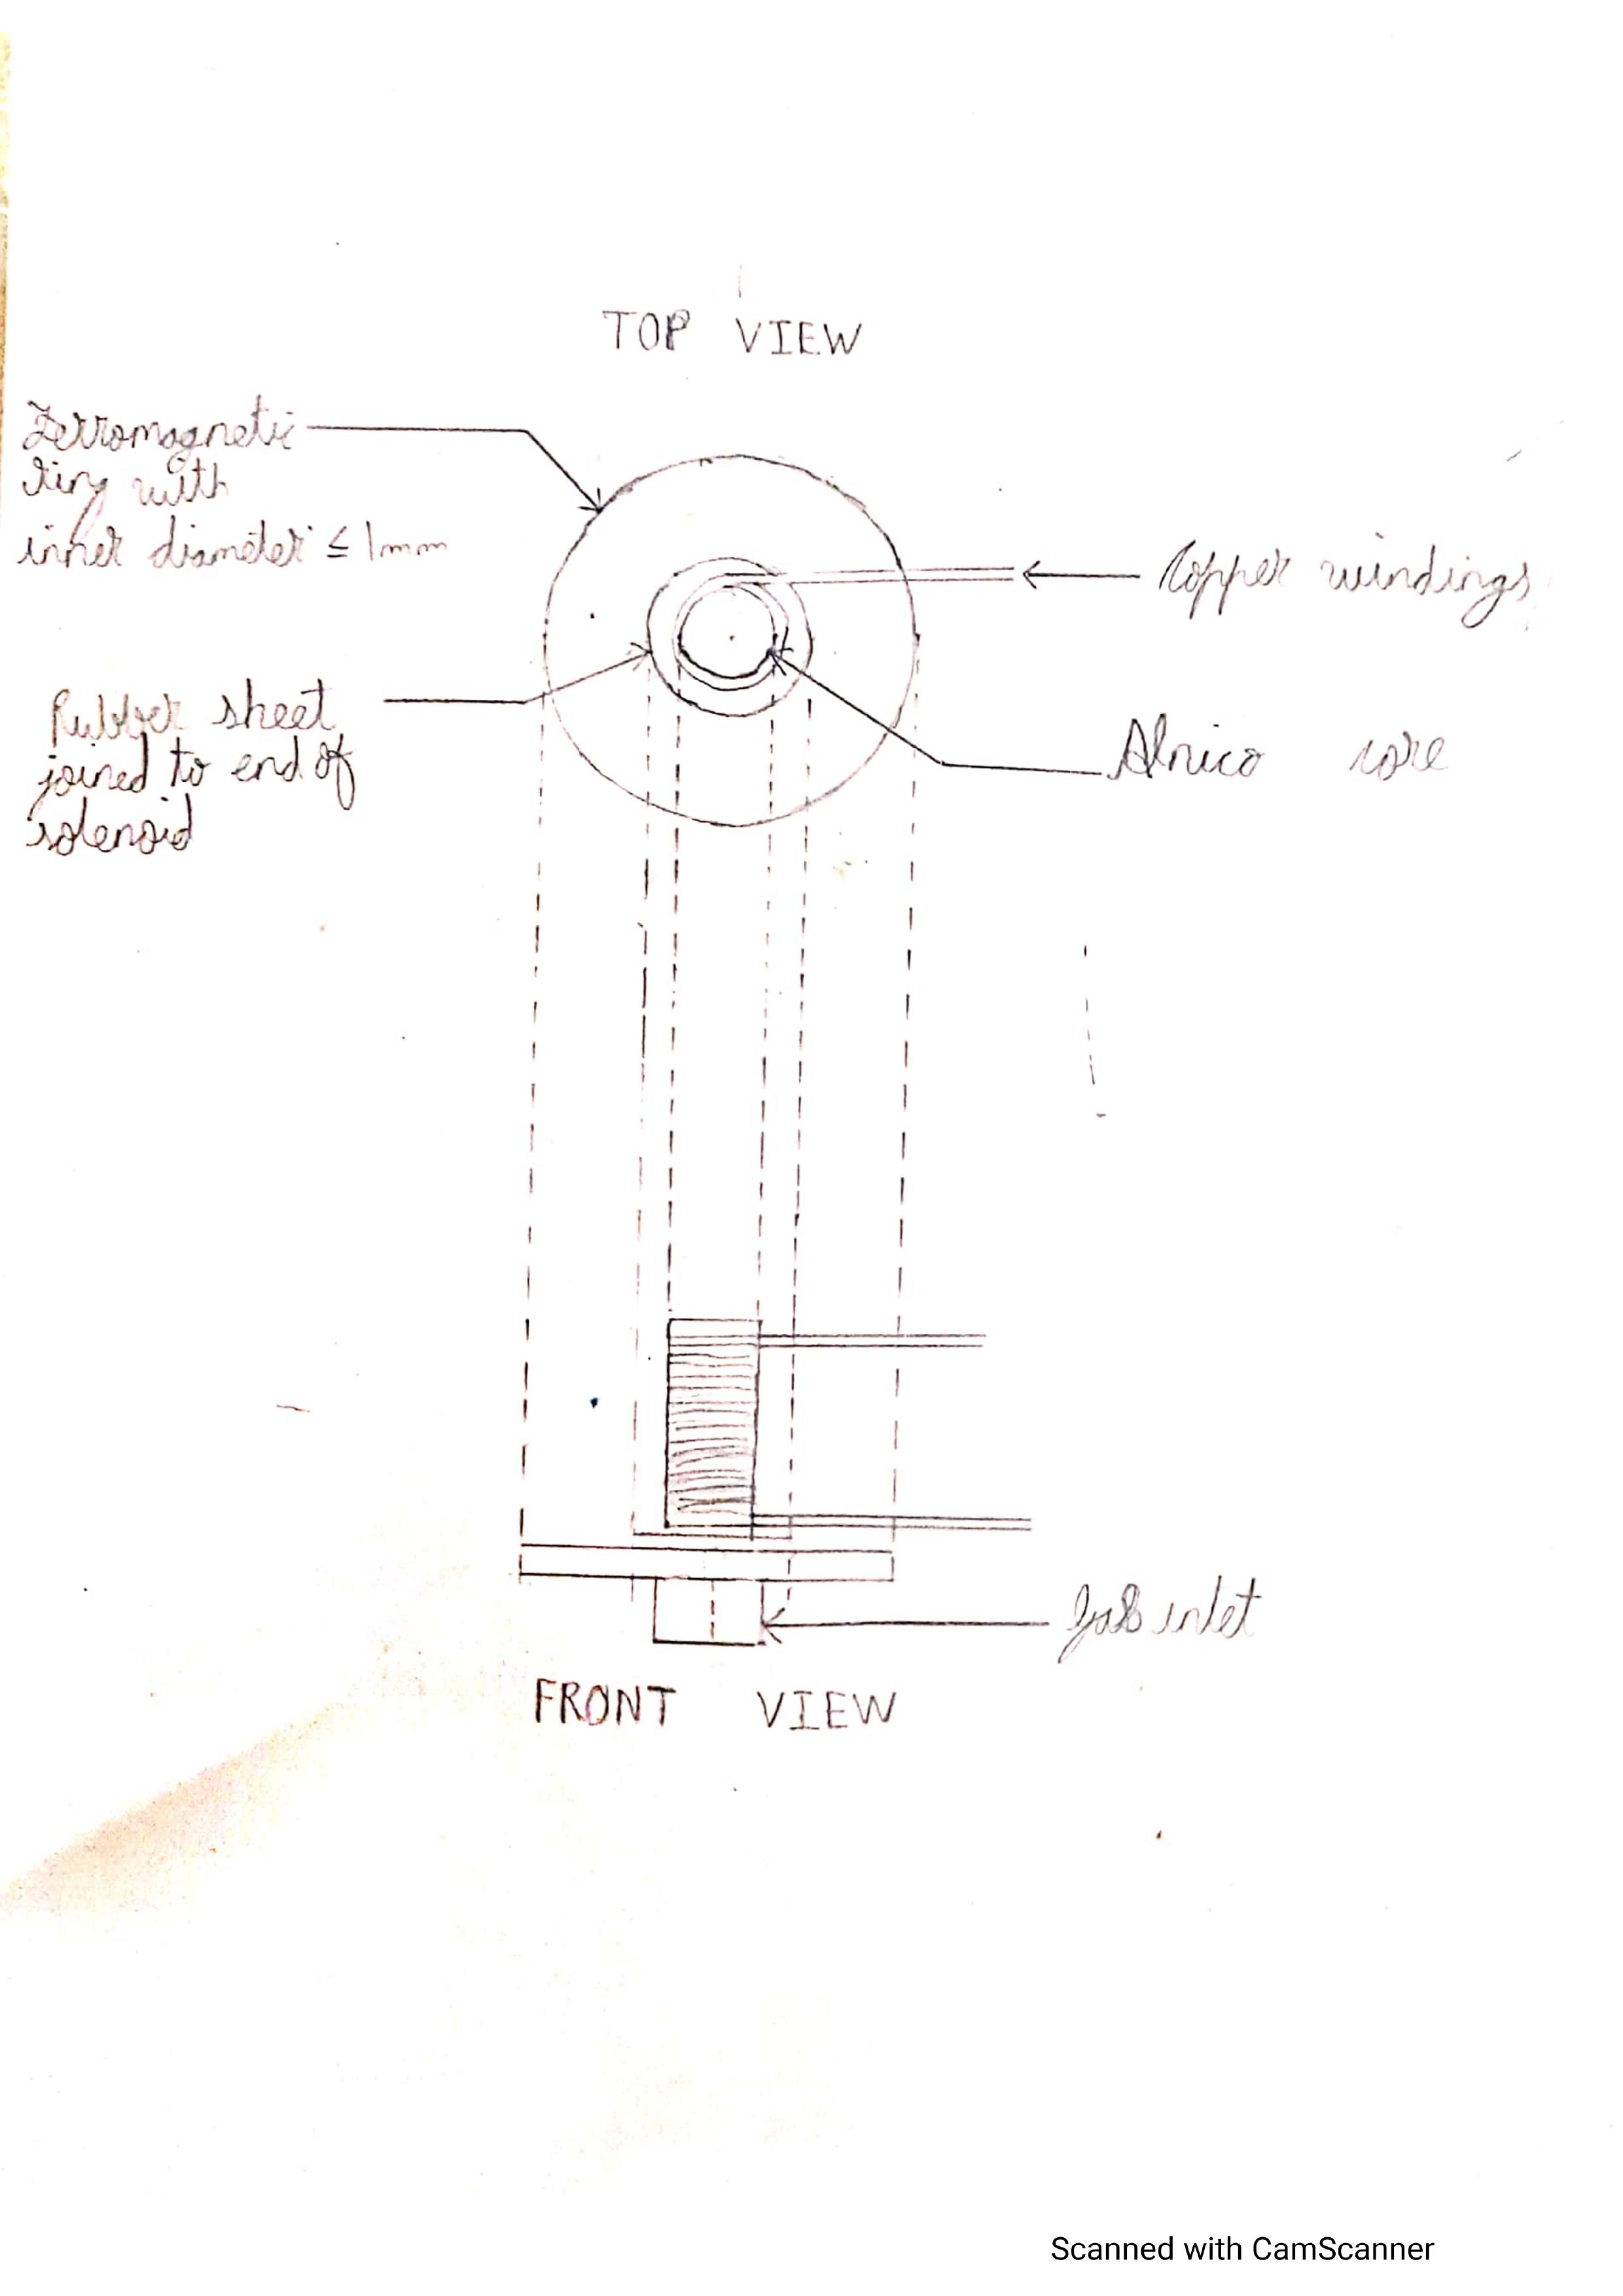 TOP VIEW
Ferromagnetic
ring with
inner diameter ≤ 1mm
Copper windings
Rubber sheet
joined to end of
solenoid
Alnico core
Gas inlet
FRONT VIEW
Scanned with CamScanner